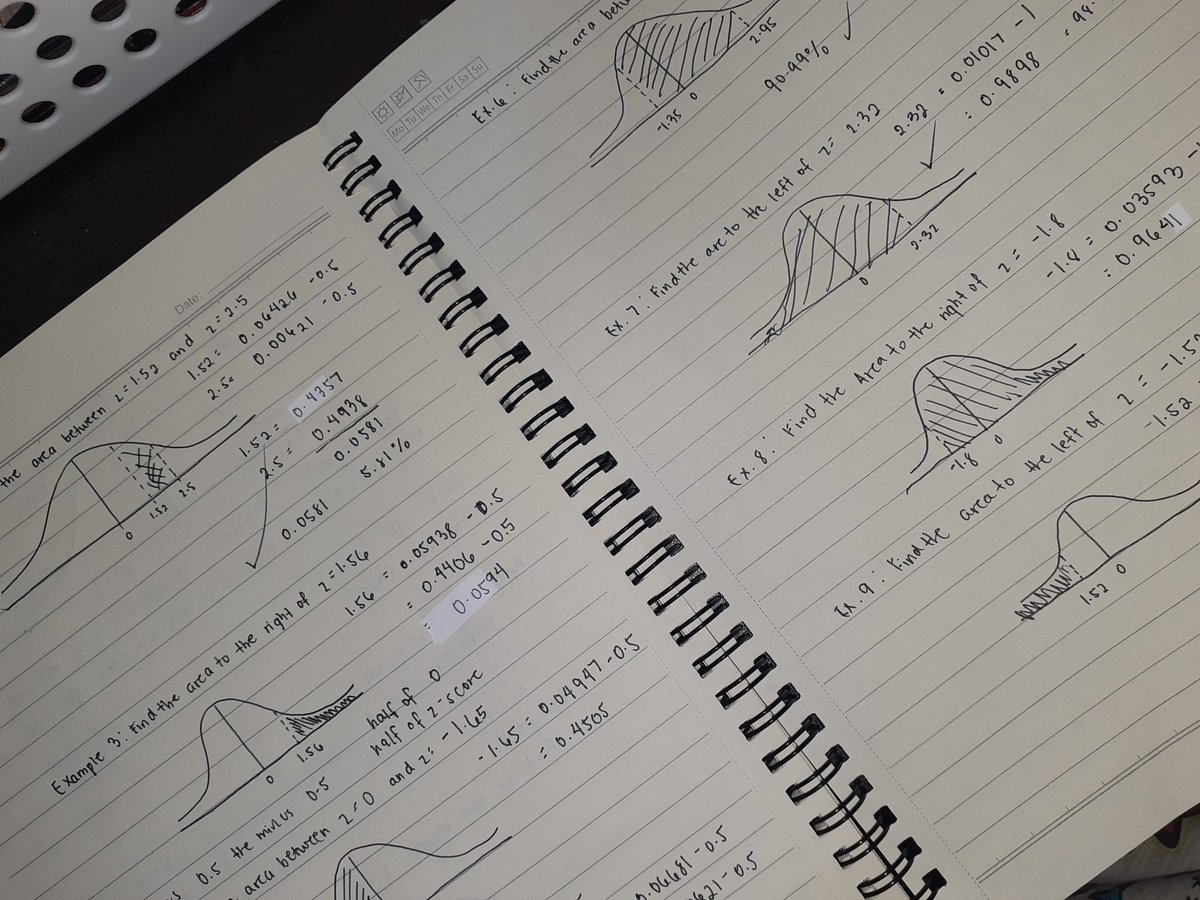 Date:
the area between z=1.52 and z=2.5
1.52= 0.06426 -0.5
2.5= 0.00621 -0.5
0 1.52 2.5
1.52= 0.4357
2.5= 0.4938
0.0581
0.0581 5.81%
Example 3: Find the area to the right of z=1.56
1.56 = 0.05938 -0.5
= 0.4406 -0.5
= 0.0594
0 1.56
half of 0
half of z-score
0.5 the minus 0.5
area between z=0 and z= -1.65
-1.65 = 0.04947 -0.5
= 0.4505
0.06681 -0.5
-0.5
Mo Tu We Th Fr Sa Su
Ex.6: Find the area
-1.35 0 2.95
90.99%
Ex. 7: Find the are to the left of z= 2.32
2.32 = 0.01017 -1
= 0.9898
0 2.32
Ex. 8: Find the Area to the right of z= -1.8
-1.8 = 0.03593
= 0.9641
-1.8 0
Ex. 9: Find the area to the left of z= -1.52
-1.52
1.52 0